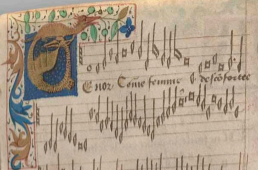 Tenor Come femme desconfortee